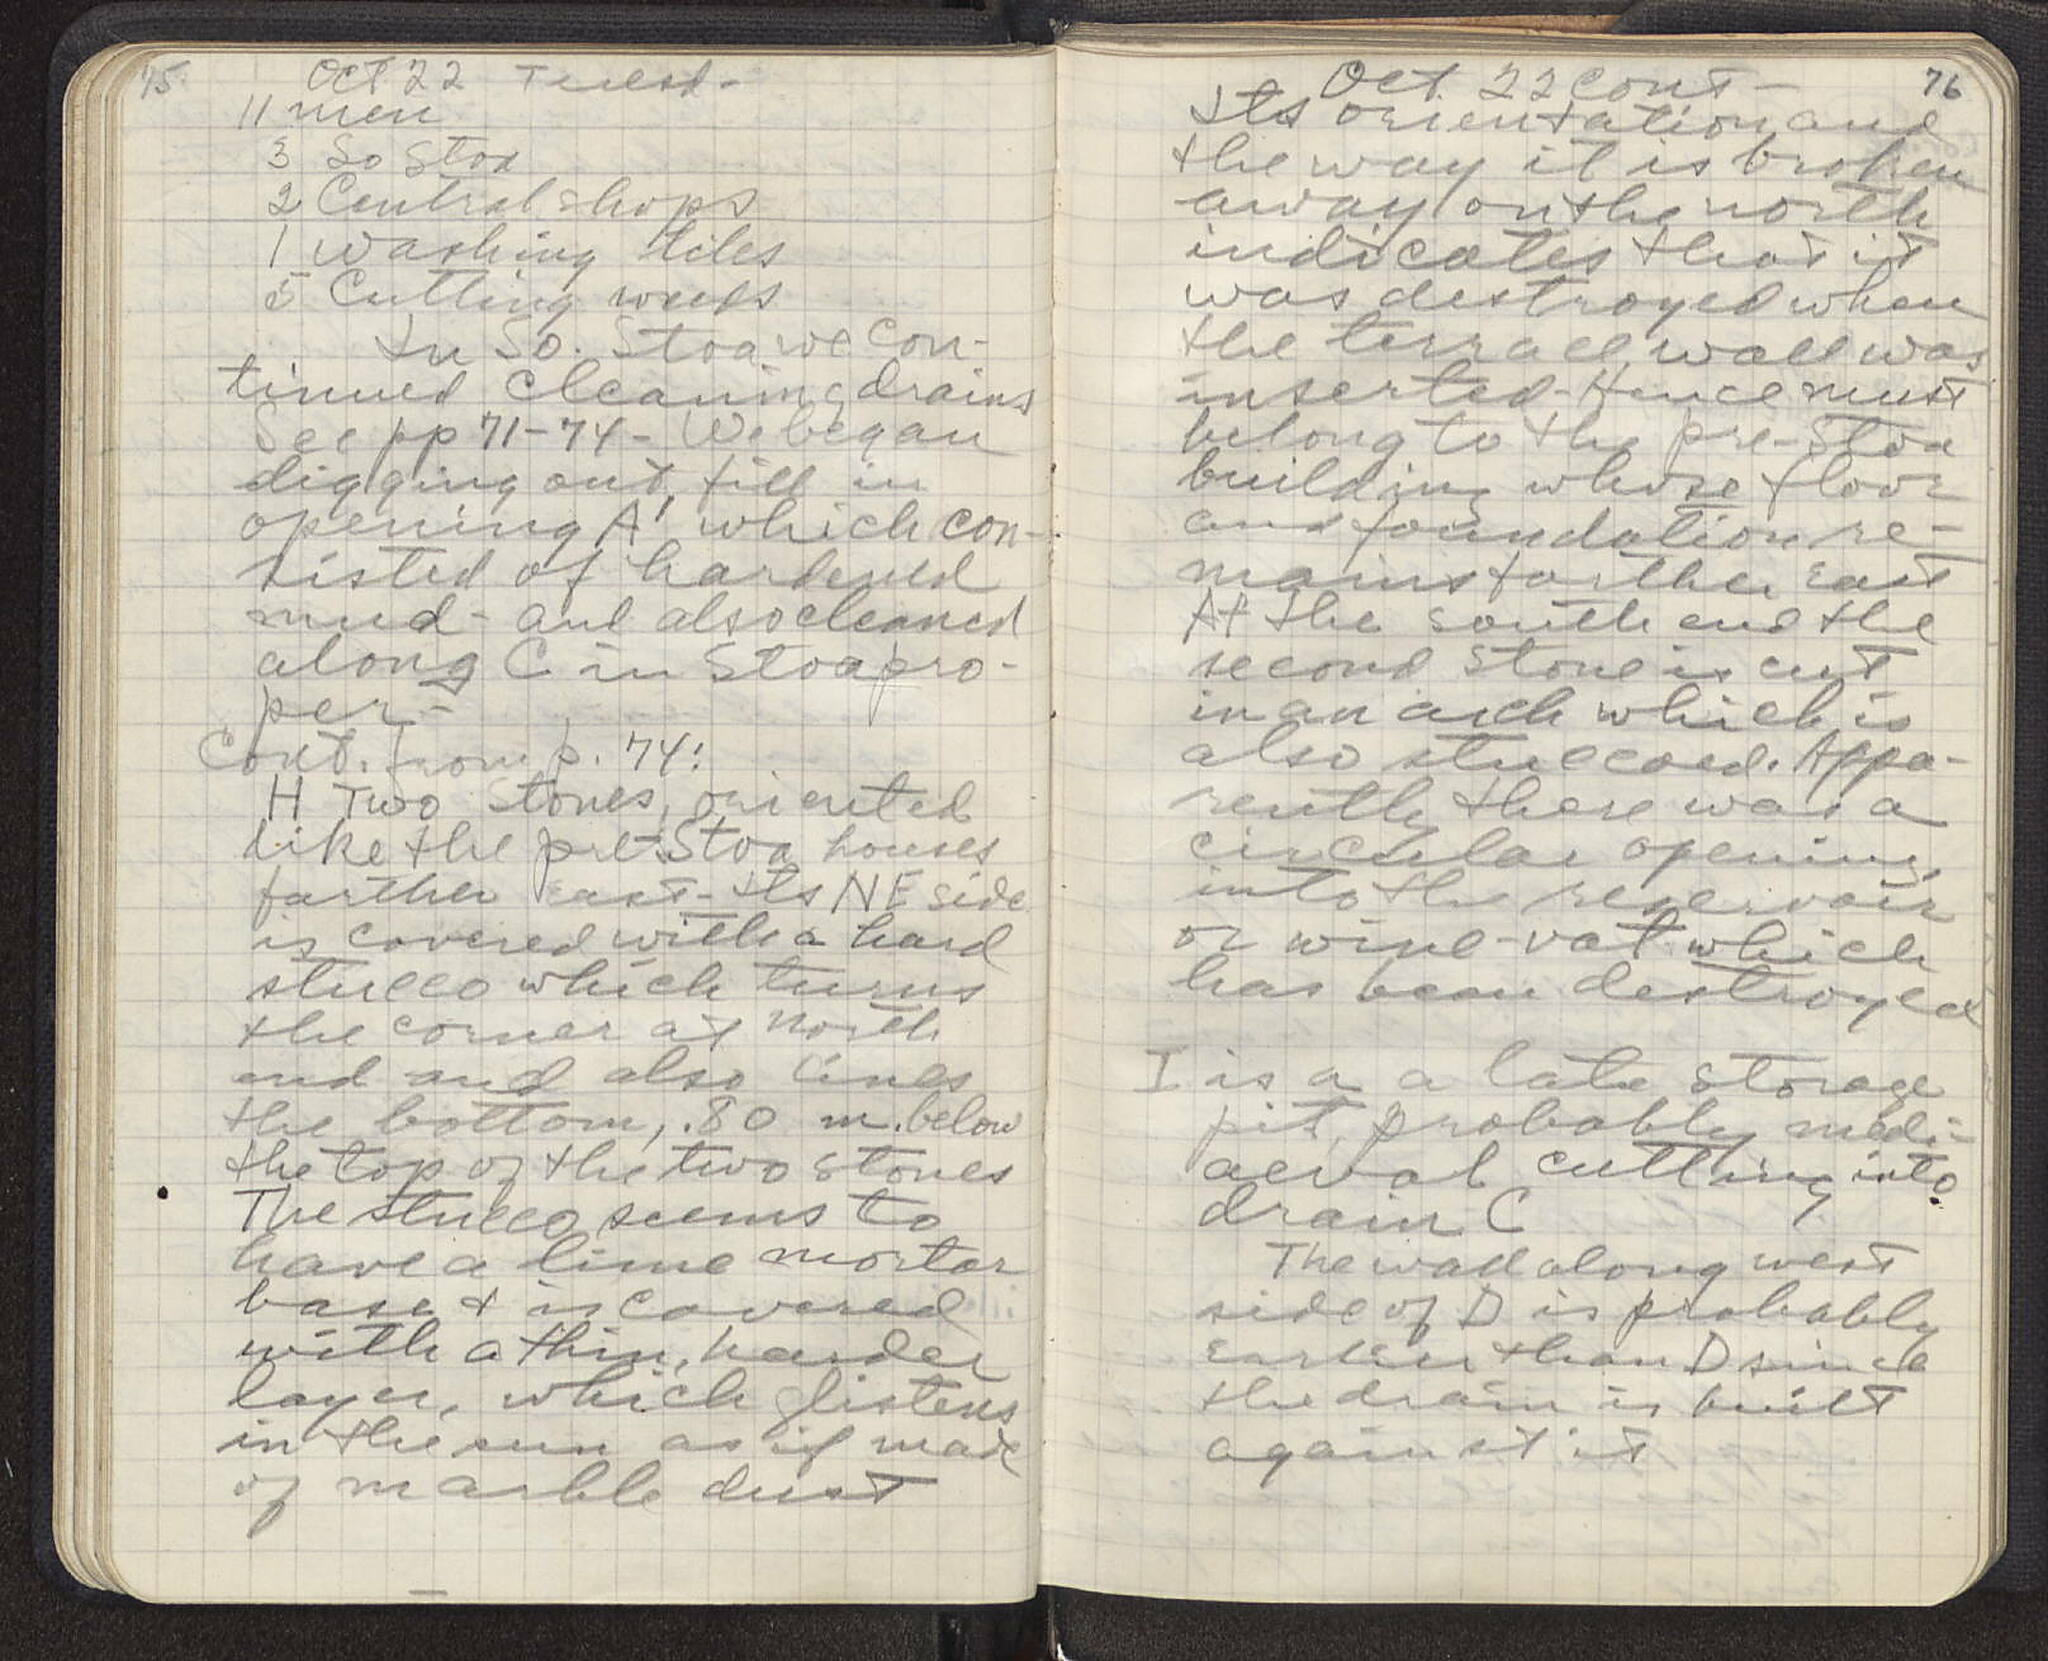 75
Oct 22 Tuesd-
11 men
3 So Stoa
2 Central shops
1 Washing tiles
5 Cutting weeds
In So. Stoa we con-
tinued cleaning drains
See pp 71-74- We began
digging out fill in
opening A' which con-
sisted of hardened
mud- and also cleaned
along C in Stoa pro-
per-
Cont. from p. 74:
H Two stones, oriented
like the pre-Stoa houses
farther East- Its NE side
is covered with a hard
stucco which turns
the corner at North
end and also lines
the bottom, .80 m. below
the top of the two stones
The stucco seems to
have a lime mortar
base & is covered
with a thin, harder
layer, which glistens
in the sun as if made
of marble dust
76
Oct. 22 cont-
Its orientation and
the way it is broken
away on the north
indicates that it
was destroyed when
the terrace wall was
inserted- Hence must
belong to the pre-Stoa
building whose floor
and foundation re-
mains farther East
At the South end the
second stone is cut
in an arch which is
also stuccoed. Appa-
rently there was a
circular opening
into the reservoir
or wine-vat which
has been destroyed
I is a a late storage
pit, probably medi-
aeval cutting into
drain C
The wall along west
side of D is probably
Earlier than D since
the drain is built
against it